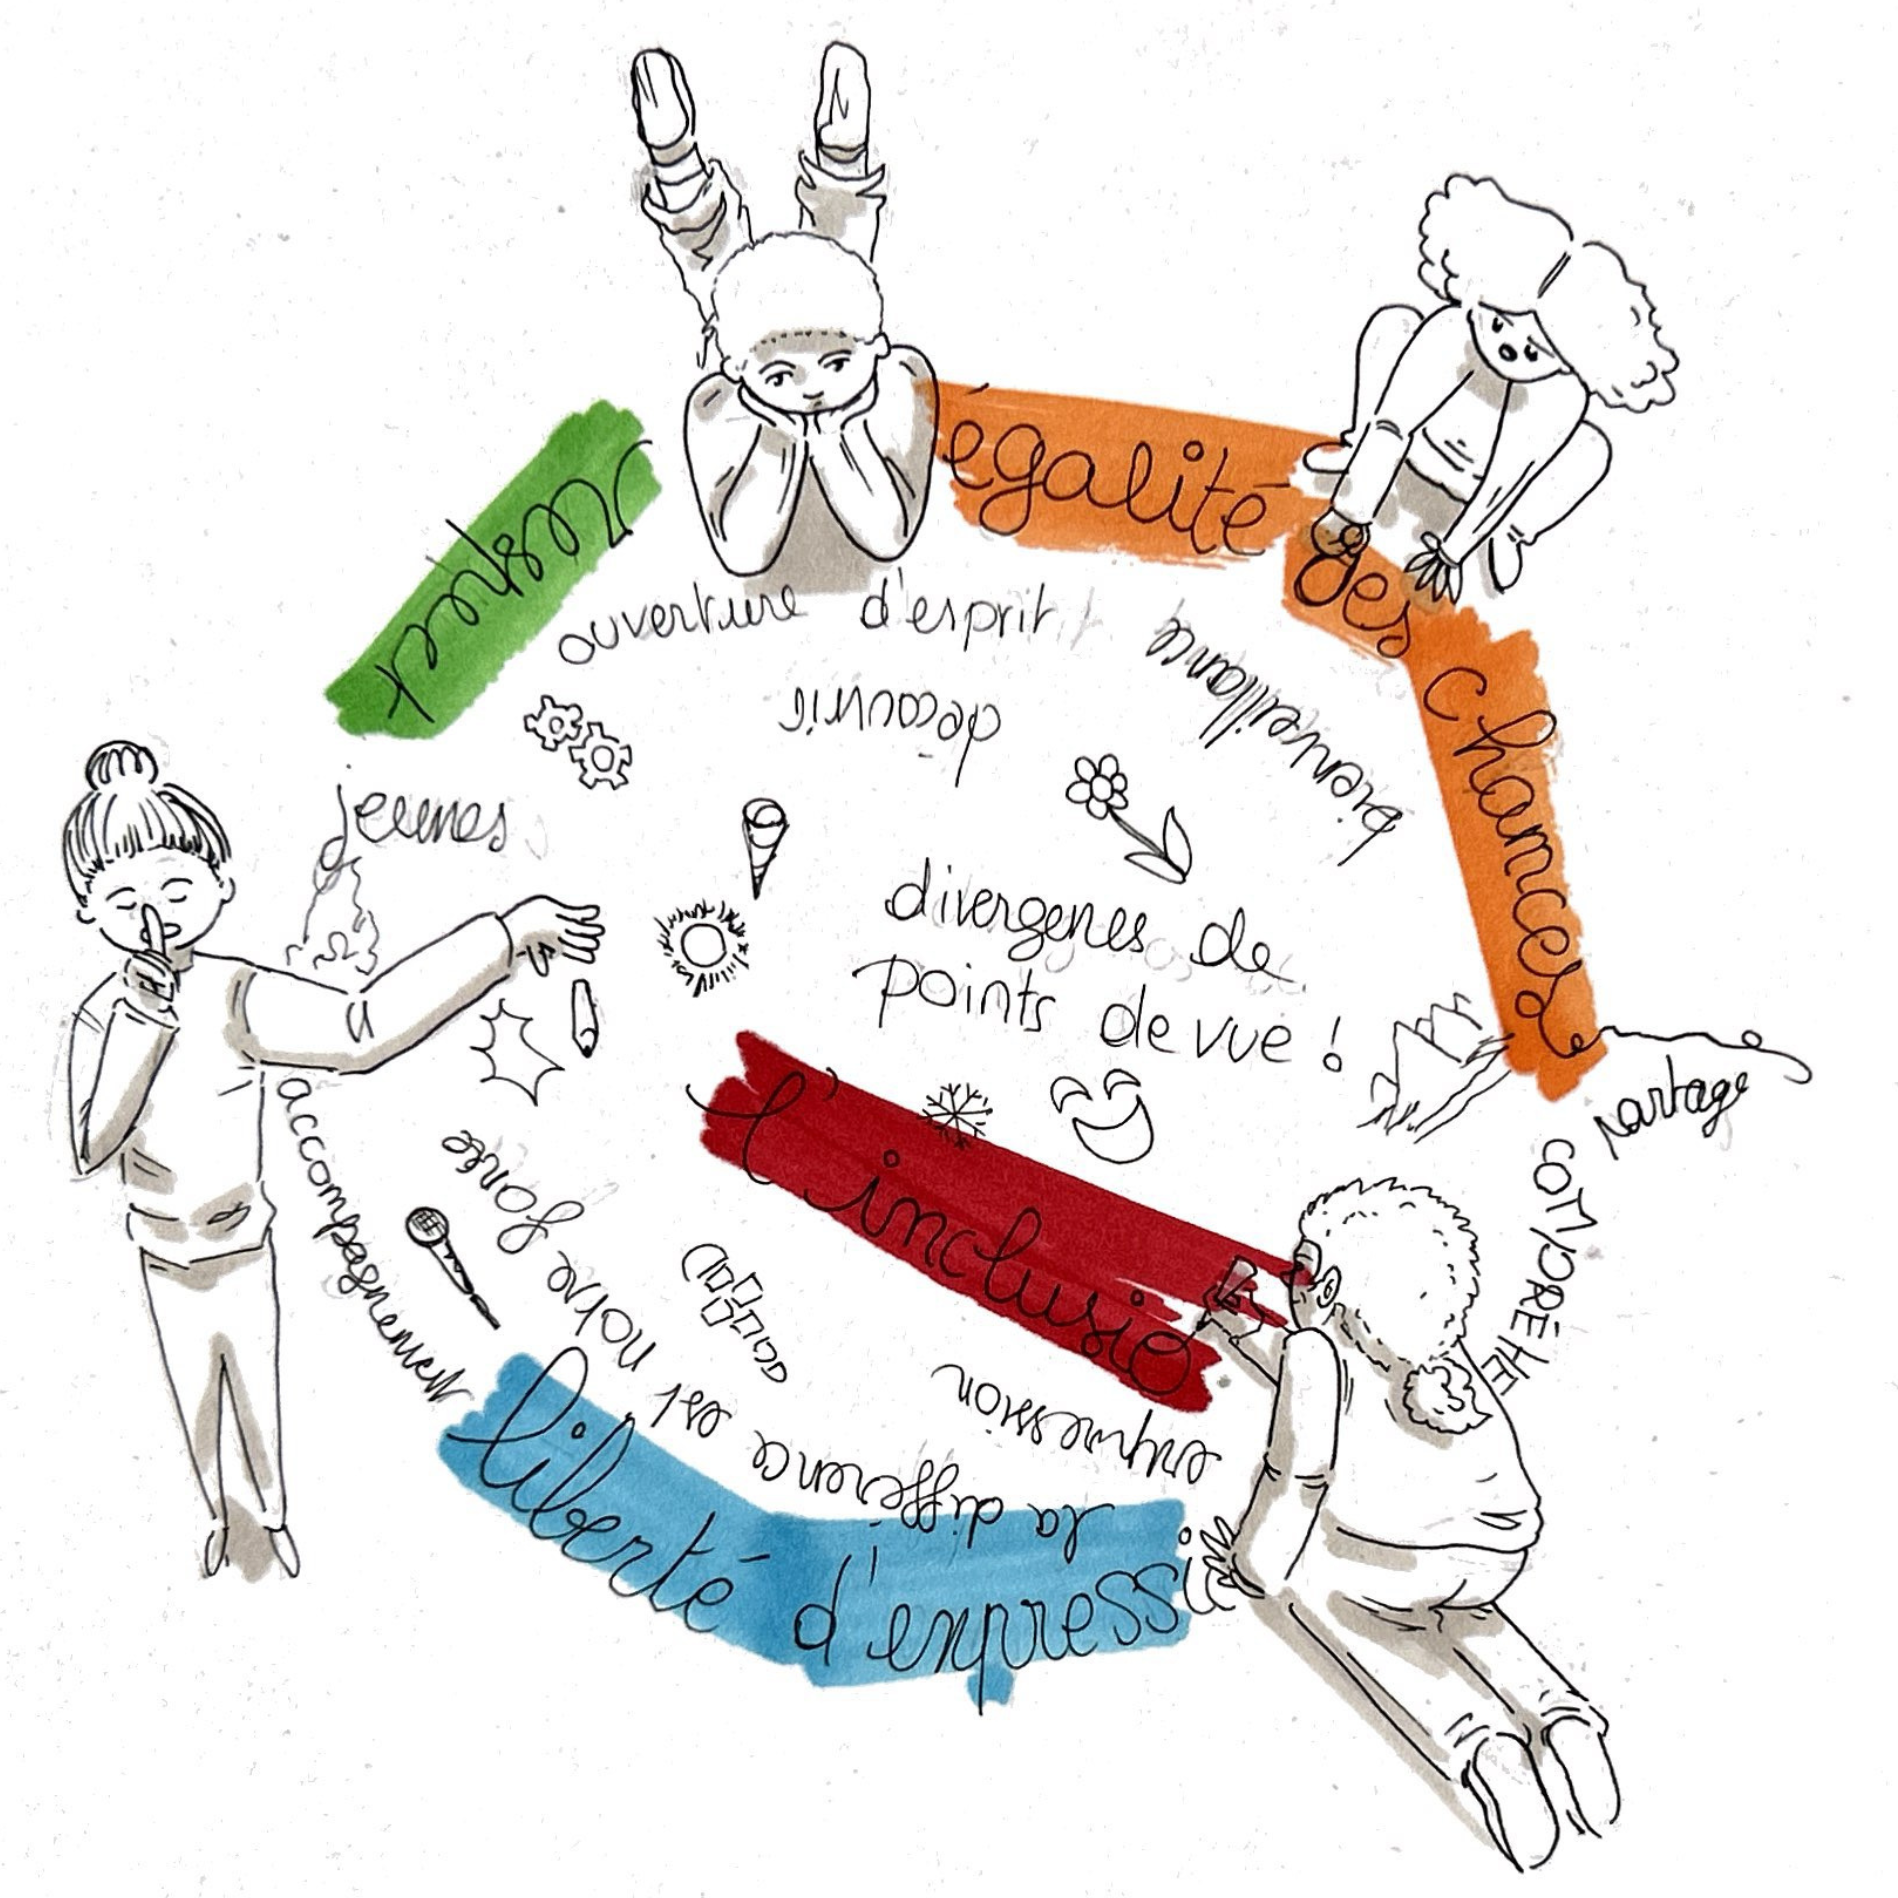 respect
égalité
des
chances
ouverture d'esprit
bienveillance
découvrir
jeunes
divergences de
points de vue !
partage
COMPRÊHE
l'inclusio
accompagnement
la différence est notre force
expression
liberté d'expressi